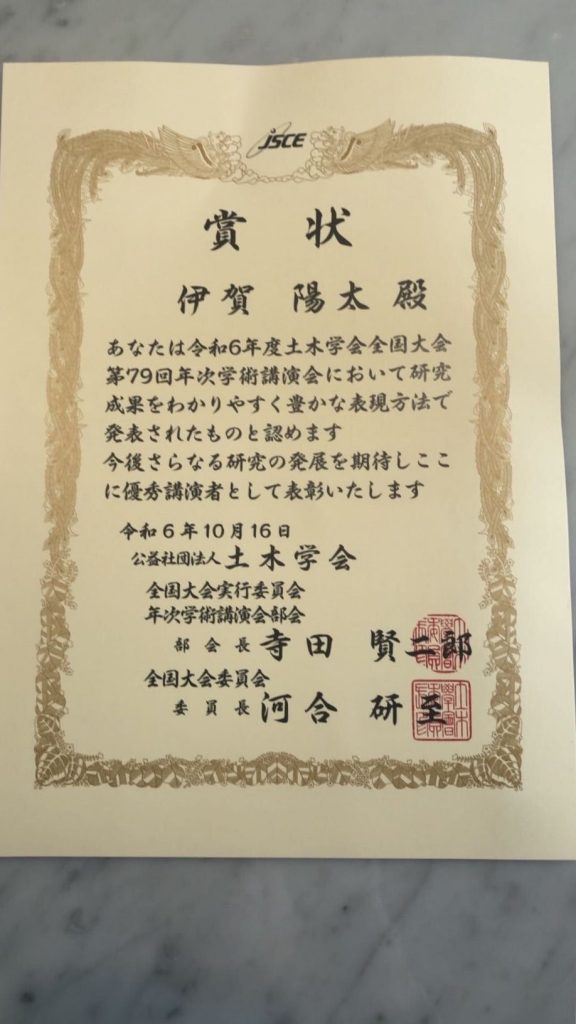 JSCE
賞状
伊賀 陽太 殿
あなたは令和6年度土木学会全国大会
第79回年次学術講演会において研究
成果をわかりやすく豊かな表現方法で
発表されたものと認めます
今後さらなる研究の発展を期待しここ
に優秀講演者として表彰いたします
令和6年10月16日
公益社団法人 土木学会
全国大会実行委員会
年次学術講演会部会
部会長 寺田 賢二郎
全国大会委員会
委員長 河合 研至